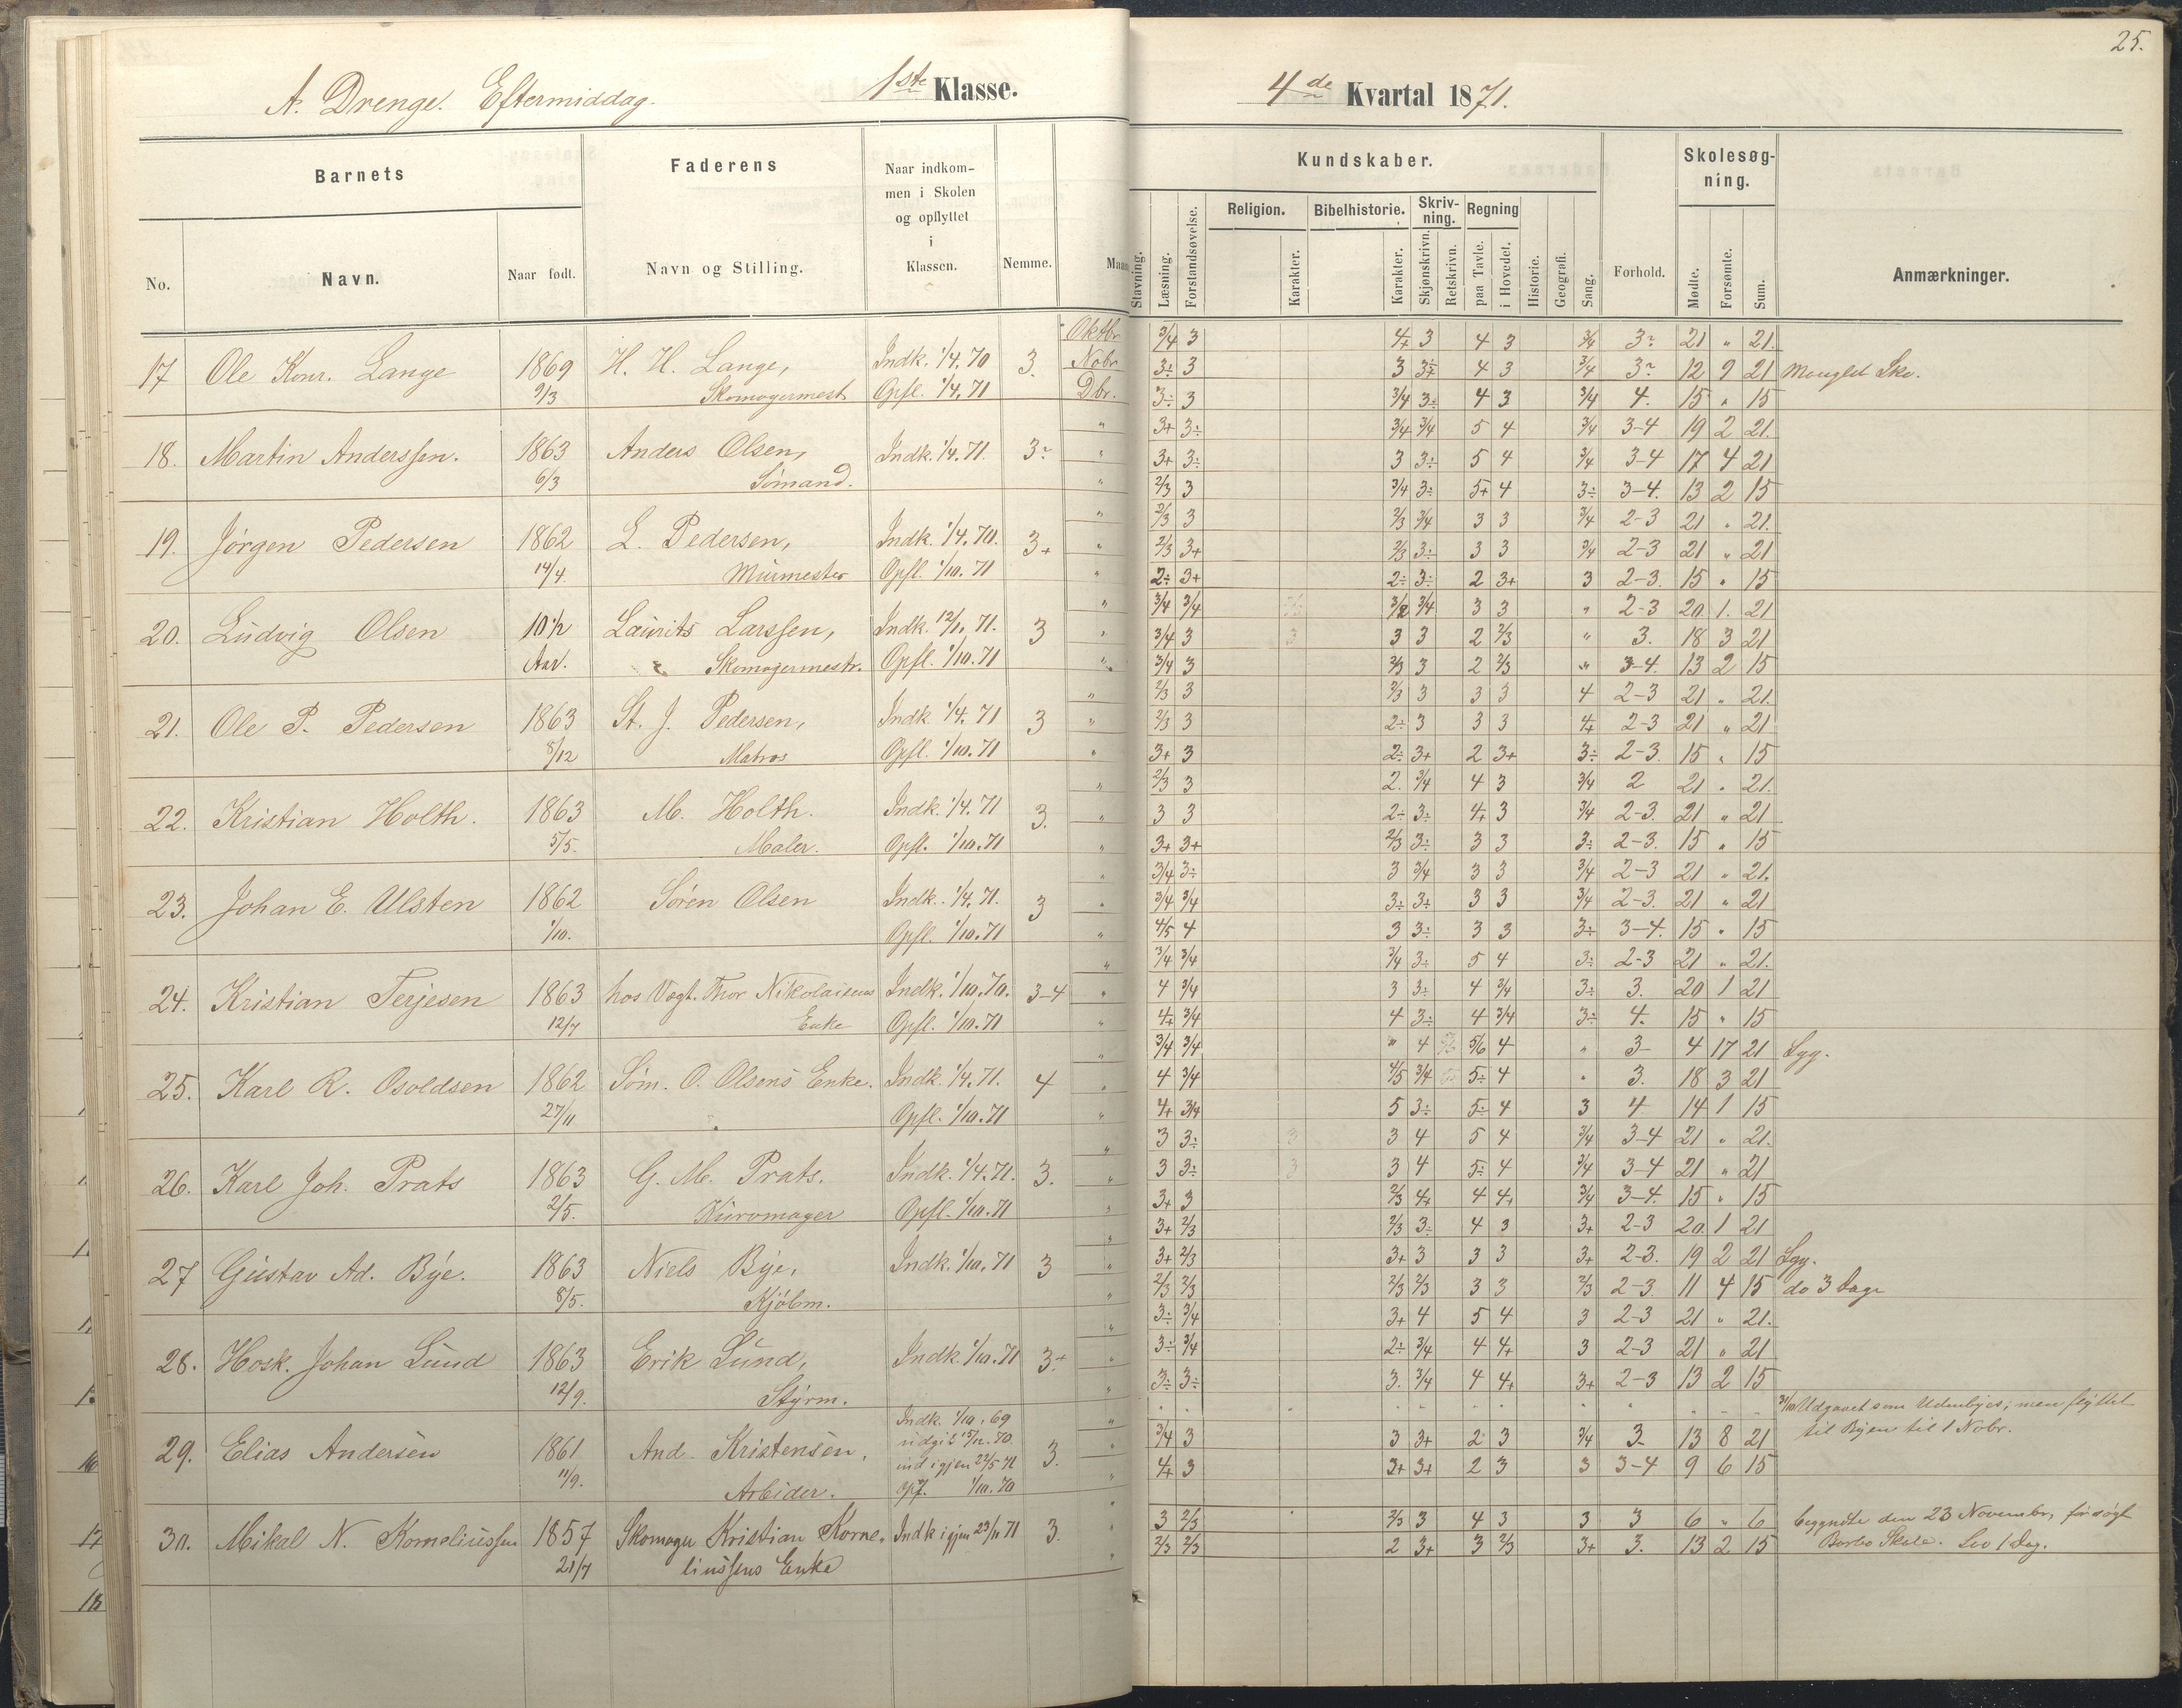 25.
A. Drenge. Eftermiddag. 1ste Klasse. 4de Kvartal 1871.
Barnets Faderens Naar indkom- men i Skolen og opflyttet i Klassen. Nemme. Maan Kundskaber. Forhold. Skolesøg- ning. Anmærkninger.
No. Navn. Naar født. Navn og Stilling.
Stavning. Læsning. Forstandsøvelse. Religion. Karakter. Bibelhistorie. Karakter. Skriv- ning. Skjønskrivn. Retskrivn. Regning paa Tavle. i Hovedet. Historie. Geografi. Sang. Møde. Forsømte. Sum.
Oktbr. 3/4 3 4+ 3 4 3 3/4 3÷ 21 " 21.
17 Ole Konr. Lange 1869 H. H. Lange, Indk. 1/4.70 3. Nobr 3÷ 3 3 3÷ 4 3 3/4 3÷ 12 9 21 Manglet Sko.
9/3 Skomagermest Opfl. 1/4.71 Dbr. 3÷ 3 3/4 3÷ 4 3 3/4 4. 15 " 15
" 3+ 3÷ 3/4 3/4 5 4 3/4 3-4 19 2 21.
18. Martin Anderssen. 1863 Anders Olsen, Indk. 1/4.71. 3÷ " 3+ 3÷ 3 3÷ 5 4 3/4 3-4 17 4 21
6/3 Sømand. " 2/3 3 3/4 3÷ 5+ 4 3÷ 3-4. 13 2 15
" 2/3 3 2/3 3/4 3 3 3/4 2-3 21 " 21.
19. Jørgen Pedersen 1862 L. Pedersen, Indk. 1/4.70. 3+ " 2/3 3+ 2/3 3÷ 3 3 3/4 2-3 21 " 21
14/4. Murmester Opfl. 1/10.71 " 2÷ 3+ 2÷ 3÷ 2 3+ 3 2-3. 15 " 15
" 3/4 3/4 3/4 3 3 " 2-3 20 1. 21
20. Ludvig Olsen 10 1/2 Laurits Larssen, Indk. 12/1. 71. 3 " 3/4 3 3 3 3 2 2/3 " 3. 18 3 21
Aar. Skomagermestr. Opfl. 1/10.71 " 3/4 3 2/3 3 2 2/3 " 3-4. 13 2 15
" 2/3 3 2/3 3 3 3 4 2-3 21 " 21.
21. Ole P. Pedersen 1863 St. J. Pedersen, Indk 1/4.71 3 " 2/3 3 2÷ 3 3 3 4+ 2-3 21 " 21
8/12 Matros Opfl. 1/10.71 " 3+ 3 2÷ 3+ 2 3+ 3÷ 2-3. 15 " 15
" 2/3 3 2. 3/4 4 3 3/4 2 21 " 21.
22. Kristian Holth. 1863 M. Holth. Indk. 1/4.71 3. " 3 3 2÷ 3÷ 4+ 3 3/4 2-3. 21 " 21
5/5. Maler. Opfl. 1/10.71 " 3+ 3+ 2/3 3÷ 3 3 3÷ 2-3. 15 " 15
" 3/4 3÷ 3 3/4 3 3 3/4 2-3 21 " 21.
23. Johan E. Ulsten 1862 Søren Olsen Indk. 1/4.71. 3 " 3/4 3/4 3÷ 3+ 3 3 3/4 2-3. 21 " 21
1/10. Opfl. 1/10.71 " 4/5 4 3 3÷ 3 3 3÷ 3-4. 15 " 15
" 3/4 3/4 3/4 3÷ 5 4 3÷ 2-3 21 " 21.
24. Kristian Terjesen 1863 hos Vægt. Thor Nikolaisens Indk. 1/10.70. 3-4 " 4 3/4 3 3÷ 4 3/4 3÷ 3. 20 1 21
12/7 Enke Opfl. 1/10.71 " 4+ 3/4 4 3÷ 4 3/4 3÷ 4. 15 " 15
" 3/4 3/4 " 4 5/6 4 " 3 4 17 21 Syg.
25. Karl R. Osoldsen 1862 Søm. O. Olsens Enke. Indk. 1/4.71. 4 " 4 3/4 4/5 3/4 5÷ 4 " 3. 18 3 21
27/11 Opfl. 1/10.71 " 4+ 3/4 5 3÷ 5÷ 4 3 4 14 1 15
" 3 3÷ 3 3 4 5 4 3/4 3-4 21 " 21.
26. Karl Joh. Prats 1863 G. M. Prats. Indk. 1/4.71. 3. " 3 3÷ 3 3 4 5÷ 4 3/4 3-4 21 " 21
2/5. Kurvmager Opfl. 1/10.71 " 3+ 3 2/3 4+ 4 4+ 3/4 3-4. 15 " 15
" 3+ 2/3 2/3 3÷ 4 3 3+ 2-3 20 1 21
27 Gustav Ad. Bye. 1863 Niels Bye, Indk. 1/10.71 3 " 3+ 2/3 3+ 3 3 3 3+ 2-3. 19 2 21 Syg.
8/5. Kjøbm. " 2/3 2/3 2/3 2/3 3 3 2/3 2-3. 11 4 15 do 3 Dage
" 3÷ 3/4 3+ 4 5 4 3 2-3 21 " 21.
28. Hosk. Johan Lund 1863 Erik Lund, Indk. 1/10.71 3÷ " 3÷ 3/4 2÷ 3/4 4 4+ 3 2-3 21 " 21
12/9. Styrm. " 3÷ 3÷ 3. 3/4 4 4+ 3+ 2-3 13 2 15
Indk. 1/10.69 " 31/10 Udgaaet som Udenbyes; men flyttet
29. Elias Andersen 1861 And. Kristensen, udgik 15/12.70. 3. " 3/4 3 3 3+ 2 3 3/4 3. 13 8 21 til Byen til 1 Nobr.
11/9. Arbeider. ind igjen 22/5 71 " 4+ 3 3+ 3+ 2 3 3 3-4 9 6 15
opf. 1/10.70
30. Mikal N. Korneliussen 1857 Skomager Kristian Korne- Indk igjen 23/11 71 3. " 3 2/3 2/3 3 4 3 3 3 6 " 6 begyndte den 23 Novembr, forsøgt
21/7 liussens Enke " 2/3 2/3 2 3+ 3 2/3 3+ 3. 13 2 15 Skole. Lov 1 Dag.